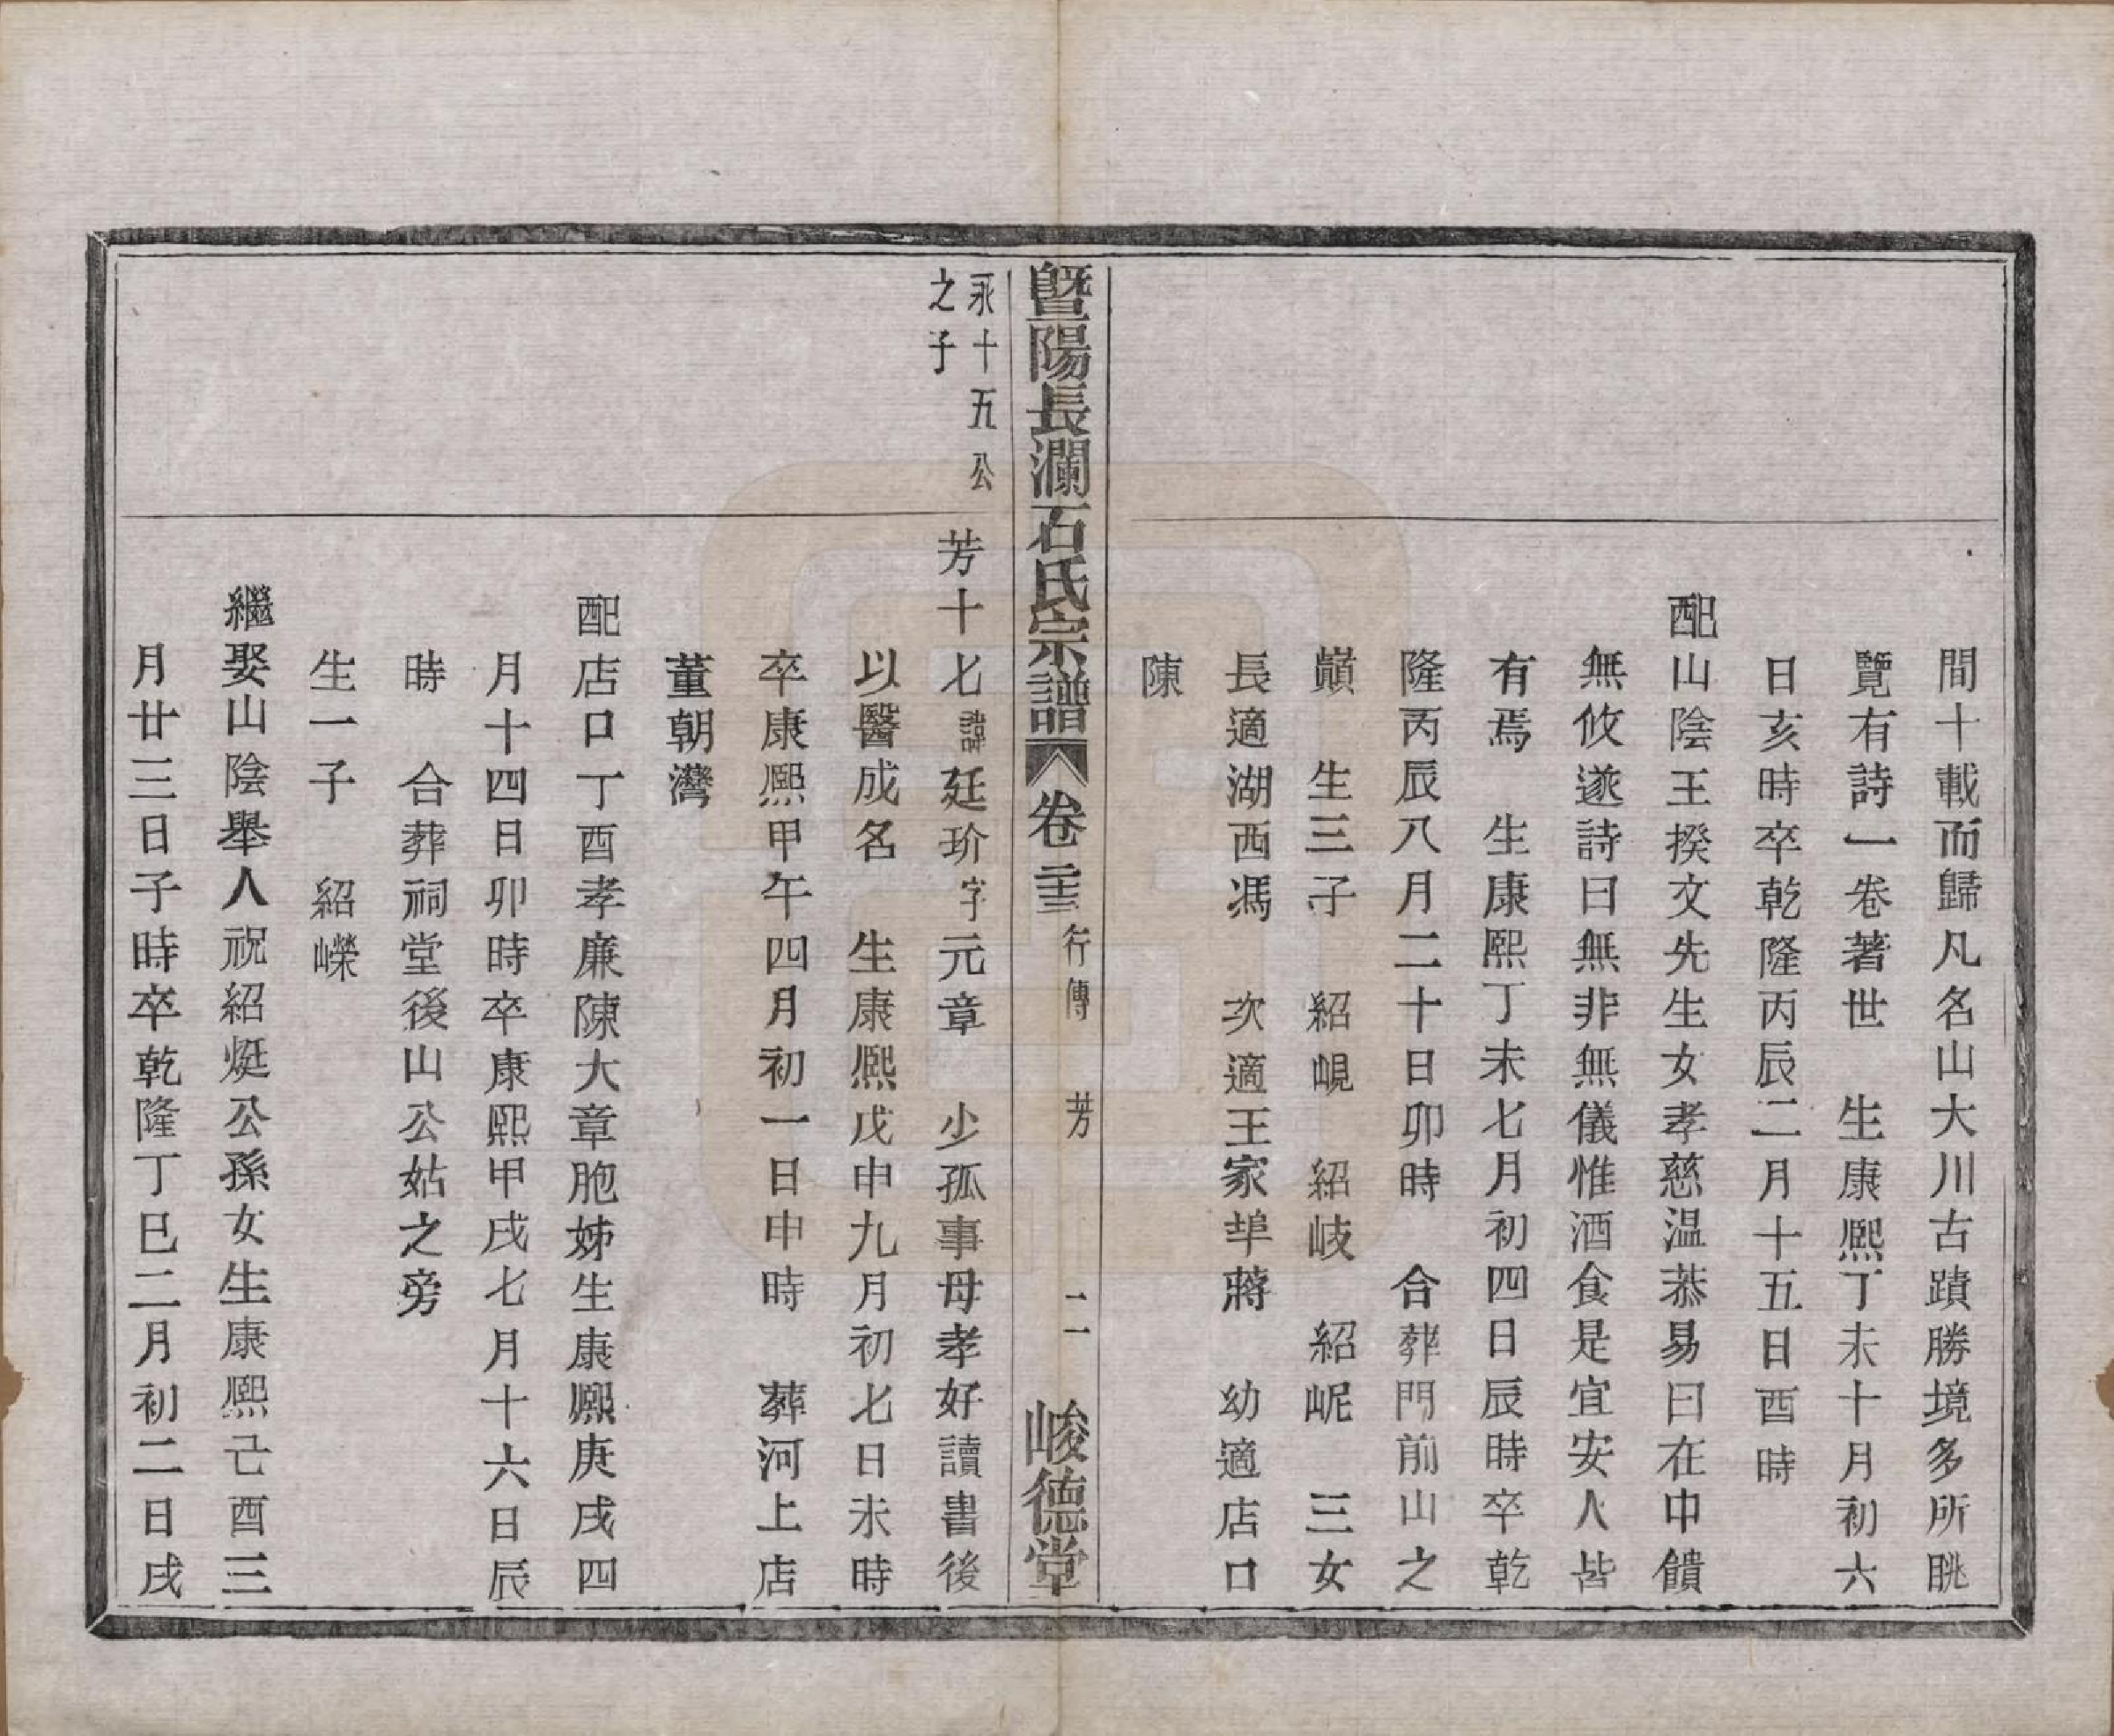 間十載而歸凡名山大川古蹟勝境多所眺
覽有詩一卷著世　生康熙丁未十月初六
日亥時卒乾隆丙辰二月十五日酉時
配山陰王揆文先生女孝慈温恭易曰在中饋
無攸遂詩曰無非無儀惟酒食是宜安人皆
有焉　生康熙丁未七月初四日辰時卒乾
隆丙辰八月二十日卯時　合葬門前山之
巔　生三子　紹峴　紹岐　紹岮　三女
長適湖西馮　次適王家埠蔣　幼適店口
陳
暨陽長瀾石氏宗譜　卷　行傳　芳　二　峻德堂
永十五公
之子
芳十七諱廷玠字元章　少孤事母孝好讀書後
以醫成名　生康熙戊申九月初七日未時
卒康熙甲午四月初一日申時　葬河上店
董朝灣
配店口丁酉孝廉陳大章胞姊生康熙庚戌四
月十四日卯時卒康熙甲戌七月十六日辰
時　合葬祠堂後山公姑之旁
生一子　紹嶸
繼娶山陰舉人祝紹烶公孫女生康熙己酉三
月廿三日子時卒乾隆丁巳二月初二日戌